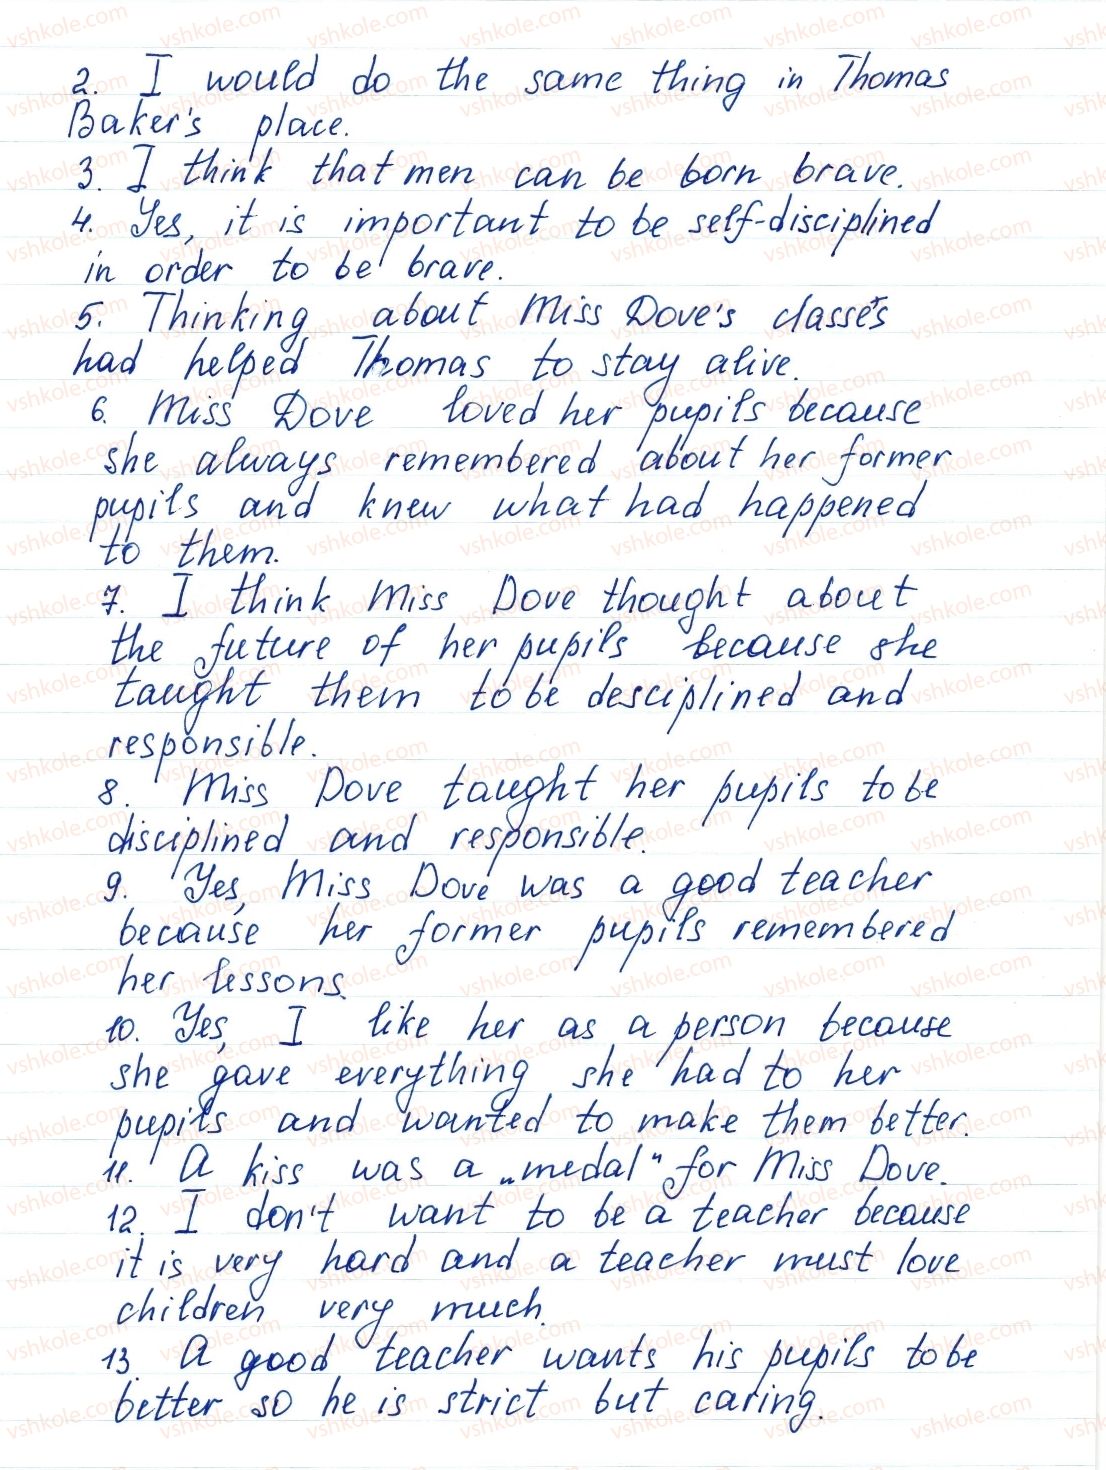 2. I would do the same thing in Thomas
Baker's place.
3. I think that men can be born brave.
4. Yes, it is important to be self-disciplined
in order to be brave.
5. Thinking about Miss Dove's classes
had helped Thomas to stay alive.
6. Miss Dove loved her pupils because
she always remembered about her former
pupils and knew what had happened
to them.
7. I think Miss Dove thought about
the future of her pupils because she
taught them to be desciplined and
responsible.
8. Miss Dove taught her pupils to be
disciplined and responsible.
9. Yes, Miss Dove was a good teacher
because her former pupils remembered
her lessons.
10. Yes, I like her as a person because
she gave everything she had to her
pupils and wanted to make them better.
11. A kiss was a „medal" for Miss Dove.
12. I don't want to be a teacher because
it is very hard and a teacher must love
children very much.
13. A good teacher wants his pupils to be
better so he is strict but caring.
vshkole.com